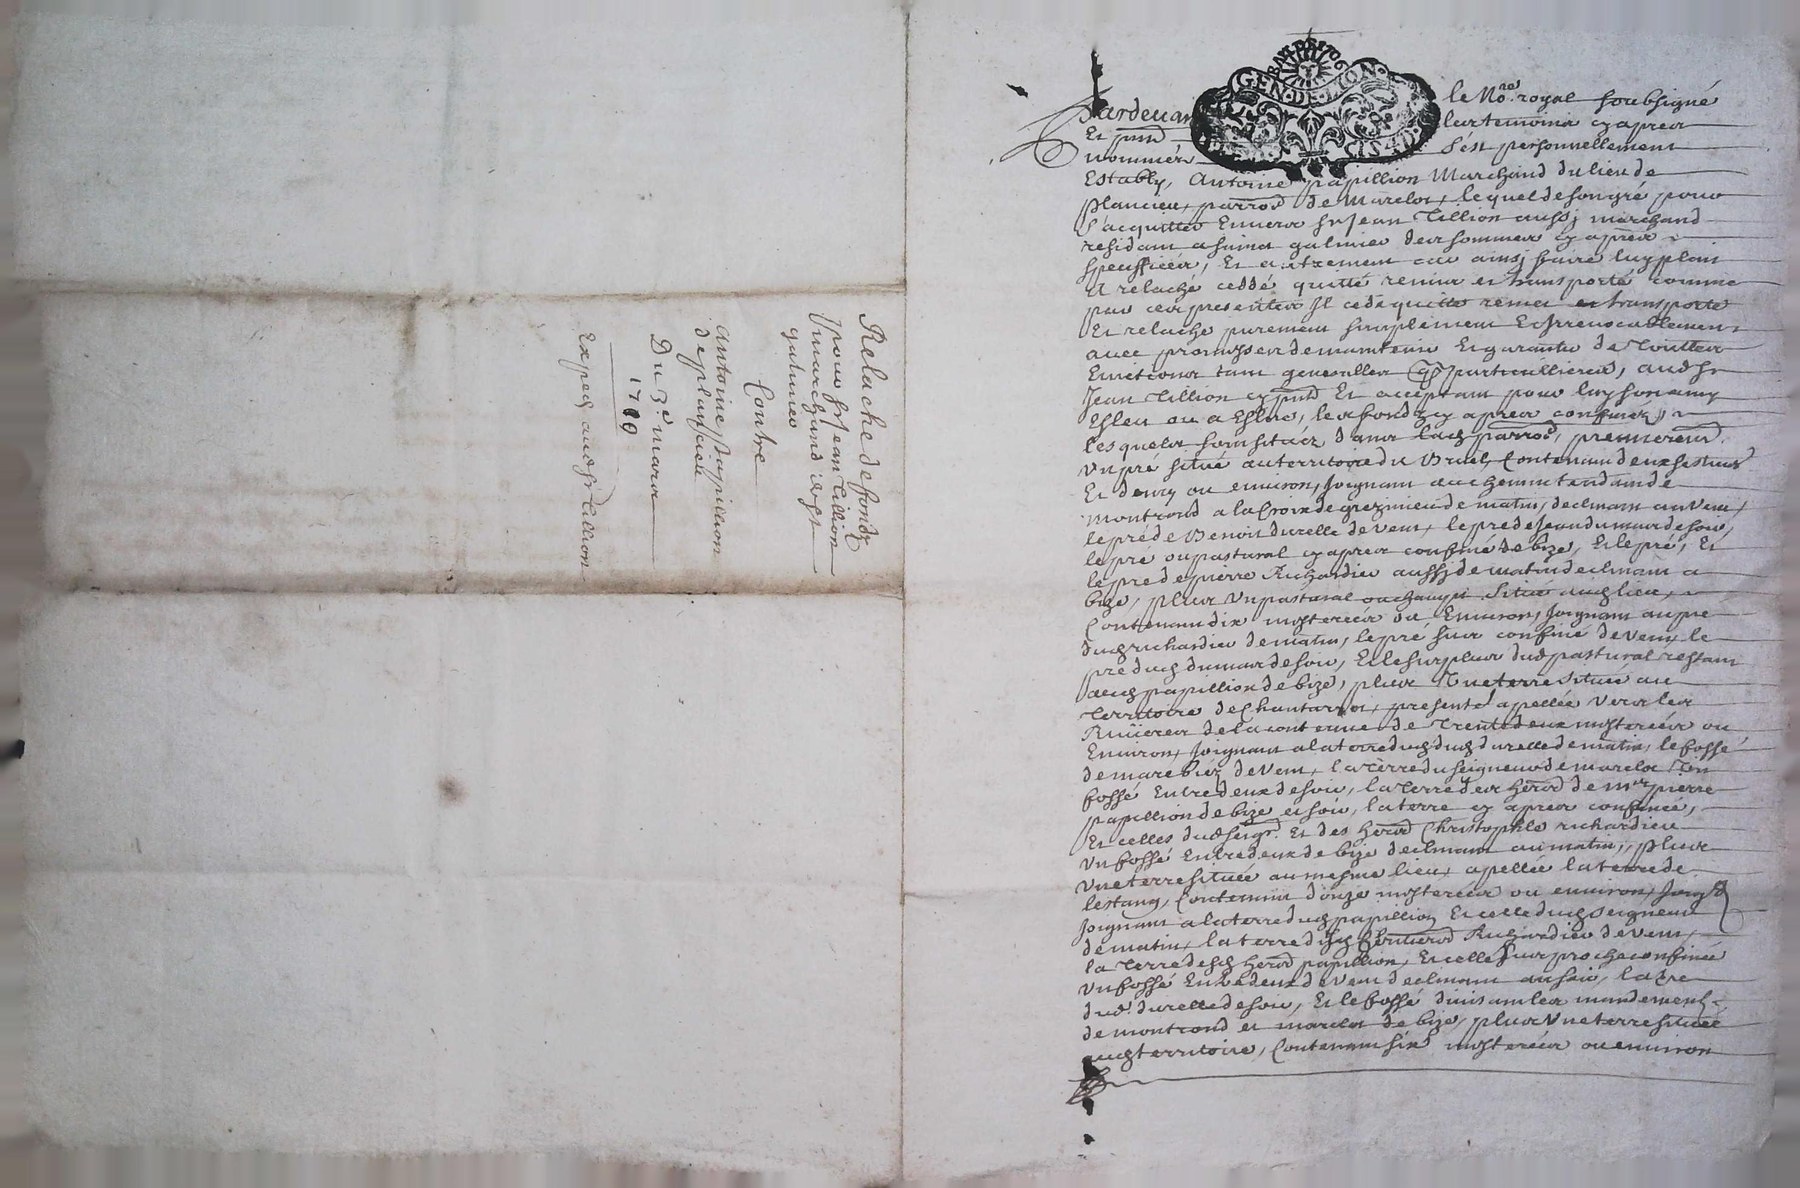 Relache de fondz
pour Sr Jean Tillion
marchand a St
galmier
Contre
Antoine papillion
de plancieu
Du 3e. mars
1709
Exped. audsr Tillion
GEN·DE·LION
Pardevant le Nore. royal soubsigné
Et pnts les temoins cy apres
nommés s'est personnellement
Estably, Antoine papillion Marchand du lieu de
plancieu, parroe de Marclop, lequel de son gré pour
s'acquitter Envers sr Jean Tillion aussi marchand
residant a saint galmier des sommes cy apres
speciffiées, Et autrement car ainsi faire luy plait
et relaché ceddé quitté remis et transporté comme
par ces presentes Il cede quitte remet et transporte
Et relache purement simplement Et Irrevocablement
avec promesses de maintenir Et garantir de Touttes
Evictions tant generalles que particullieres, audsr
Jean Tillion cy pnt Et acceptant pour luy son amy
Esleu ou a Eslire, les fondz cy apres confinéz,
lesquels sont situéz dans lad parroe, premierement
un pré situé au territoire du Bruel, Contenant deux
Et demy ou environ, Joignant au chemin tendant de
montrond a la Croix de grezimieu de matin, declinant au vent,
le pré de Benoit durelle de vent, le pré de Jean dumas de soir,
le pré ou pastural cy apres confiné de bize, Et le pré, Et
le pré de pierre Richardier aussi de matin declinant a
bize, plus un pastural ou champt situé audlieu,
Contenant dix mesterées ou Environ, Joignant au pré
dud richardier de matin, le pré sus confiné de vent, le
pré dud dumas de soir, Et le surplus dud pastural restant
aud papillion de bize, plus Une terre située au
Territoire de Chantarsot, presente appellée vers les
Rivieres de la contenue de Trente deux mesterées ou
Environ, Joignant a la terre dud durelle de matin, le fossé
de mare de vent, la Terre du seigneur de marclop Un
fossé Entredeux de soir, la Terre des hers de mre pierre
papillion de bize et soir, la terre cy apres confinée,
Et celles dud seigr. Et des hers Christophle richardier
un fossé Entredeux de bize declinant au matin, plus
une terre située au mesme lieu, appellée la terre de
lestang, Contenant donze mesterées ou environ,
Joignant a la terre dud papillion Et celle dud seigneur
de matin, la terre desd heritiers Richardier de vent,
la Terre desd hers papillion, Et celle sus proche confinée
un fossé Entredeux de vent declinant au soir, la Tre
dud. durelle de soir, Et le fossé divisant les mandements
de montrond et marclop de bize, plus une terre située
aud territoire, Contenant six mesterées ou environ